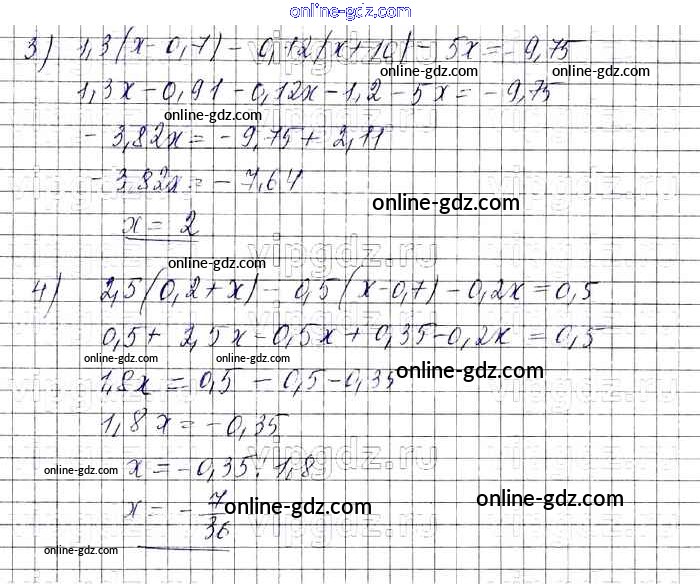 online-gdz.com
3) 1,3(x-0,7) - 0,12(x+10) - 5x = -9,75
online-gdz.com online-gdz.com
1,3x - 0,91 - 0,12x - 1,2 - 5x = -9,75
online-gdz.com
-3,82x = -9,75 + 2,11
-3,82x = -7,64
online-gdz.com
x = 2
vipgdz.ru
online-gdz.com
4) 2,5(0,2+x) - 0,5(x-0,7) - 0,2x = 0,5
0,5 + 2,5x - 0,5x + 0,35 - 0,2x = 0,5
online-gdz.com online-gdz.com online-gdz.com
1,8x = 0,5 - 0,5 - 0,35
1,8x = -0,35
vipgdz.ru
online-gdz.com x = -0,35 : 1,8
x = -7/36
online-gdz.com online-gdz.com
online-gdz.com